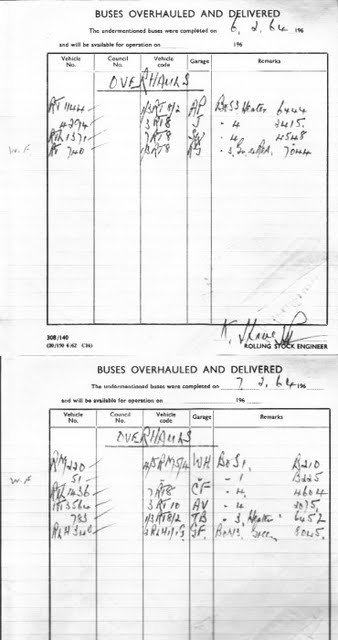 BUSES OVERHAULED AND DELIVERED
The undermentioned buses were completed on 6. 2. 64 196
and will be available for operation on 196
Vehicle No. Council No. Vehicle code Garage Remarks
OVERHAULS
RT 1144 1/3 RT8/2 AP Bo53 Heater 6444
4294 3 RT8 J - 4 2415.
RTL 1371 7 RT8 SW - 4 4548
W.F RT 740 RG 7044
308/140
(20/150 6/62 C16)
ROLLING STOCK ENGINEER
BUSES OVERHAULED AND DELIVERED
The undermentioned buses were completed on 7. 2. 64 196
and will be available for operation on 196
Vehicle No. Council No. Vehicle code Garage Remarks
OVERHAULS
RM 220 4/5 RM5/4 WH Bo51, B210
W.F 51 - 1 B225
RTL 1436 7 RT8 CF - 4 4604
RT 3564 3 RT 10 AV - 4 2075.
783 1/3 RT8/2 TB - 3, Heater 6452
RLH GF